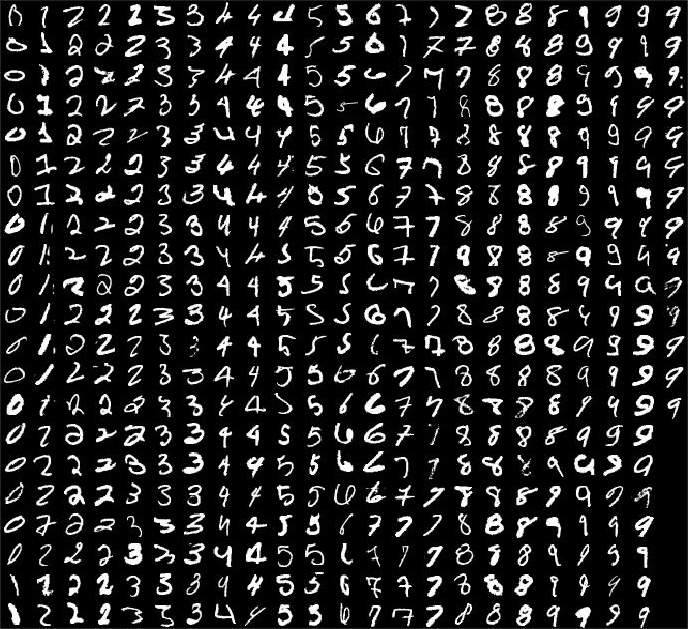 0 1 2 2 2 3 3 4 4 4 5 5 6 7 7 7 8 8 8 9 9 9 9
0 1 2 2 2 3 3 4 4 4 5 5 6 7 7 7 8 8 8 9 9 9 9
0 1 2 2 2 3 3 4 4 4 5 5 6 7 7 7 8 8 8 9 9 9 9
0 1 2 2 2 3 3 4 4 4 5 5 6 7 7 8 8 8 8 9 9 9 9
0 1 2 2 2 3 3 4 4 4 5 5 6 7 7 8 8 8 8 9 9 9 9
0 1 2 2 2 3 3 4 4 4 5 5 6 7 7 8 8 8 8 9 9 9 9
0 1 2 2 2 3 3 4 4 4 5 5 6 7 7 8 8 8 8 9 9 9 9
0 1 2 2 2 3 3 4 4 4 5 5 6 7 7 8 8 8 8 9 9 9 9
0 1 2 2 2 3 3 4 4 5 5 5 6 7 7 8 8 8 8 9 9 9 9
0 1 2 2 2 3 3 4 4 5 5 5 6 7 7 8 8 8 8 9 9 9 9
0 1 2 2 2 3 3 4 4 5 5 5 6 7 7 8 8 8 8 9 9 9 9
0 1 2 2 2 3 3 4 4 5 5 5 6 7 7 8 8 8 8 9 9 9 9
0 1 2 2 2 3 3 4 4 5 5 6 6 7 7 8 8 8 8 9 9 9 9
0 1 2 2 2 3 3 4 4 5 5 6 6 7 7 8 8 8 8 9 9 9 9
0 2 2 2 2 3 3 4 4 5 5 6 6 7 7 8 8 8 8 9 9 9
0 2 2 2 3 3 3 4 4 5 5 6 6 7 7 8 8 8 9 9 9 9
0 2 2 2 3 3 3 4 4 5 5 6 6 7 7 8 8 8 9 9 9 9
0 2 2 2 3 3 3 4 4 5 5 6 7 7 7 8 8 8 9 9 9 9
0 2 2 2 3 3 3 4 4 5 5 6 7 7 7 8 8 8 9 9 9 9
1 2 2 2 3 3 3 4 4 5 5 6 7 7 7 8 8 8 9 9 9 9
1 2 2 2 3 3 3 4 4 5 5 6 7 7 7 8 8 8 9 9 9 9